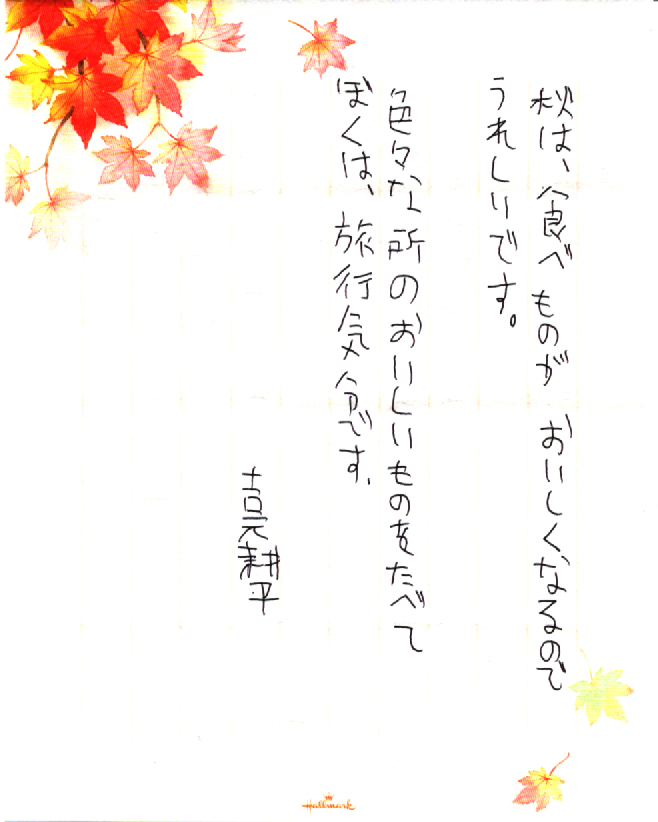 秋は、食べものが おいしくなるので
うれしいです。
色々な所のおいしいものをたべて
ぼくは、旅行気分です。
吉元耕平
Hallmark